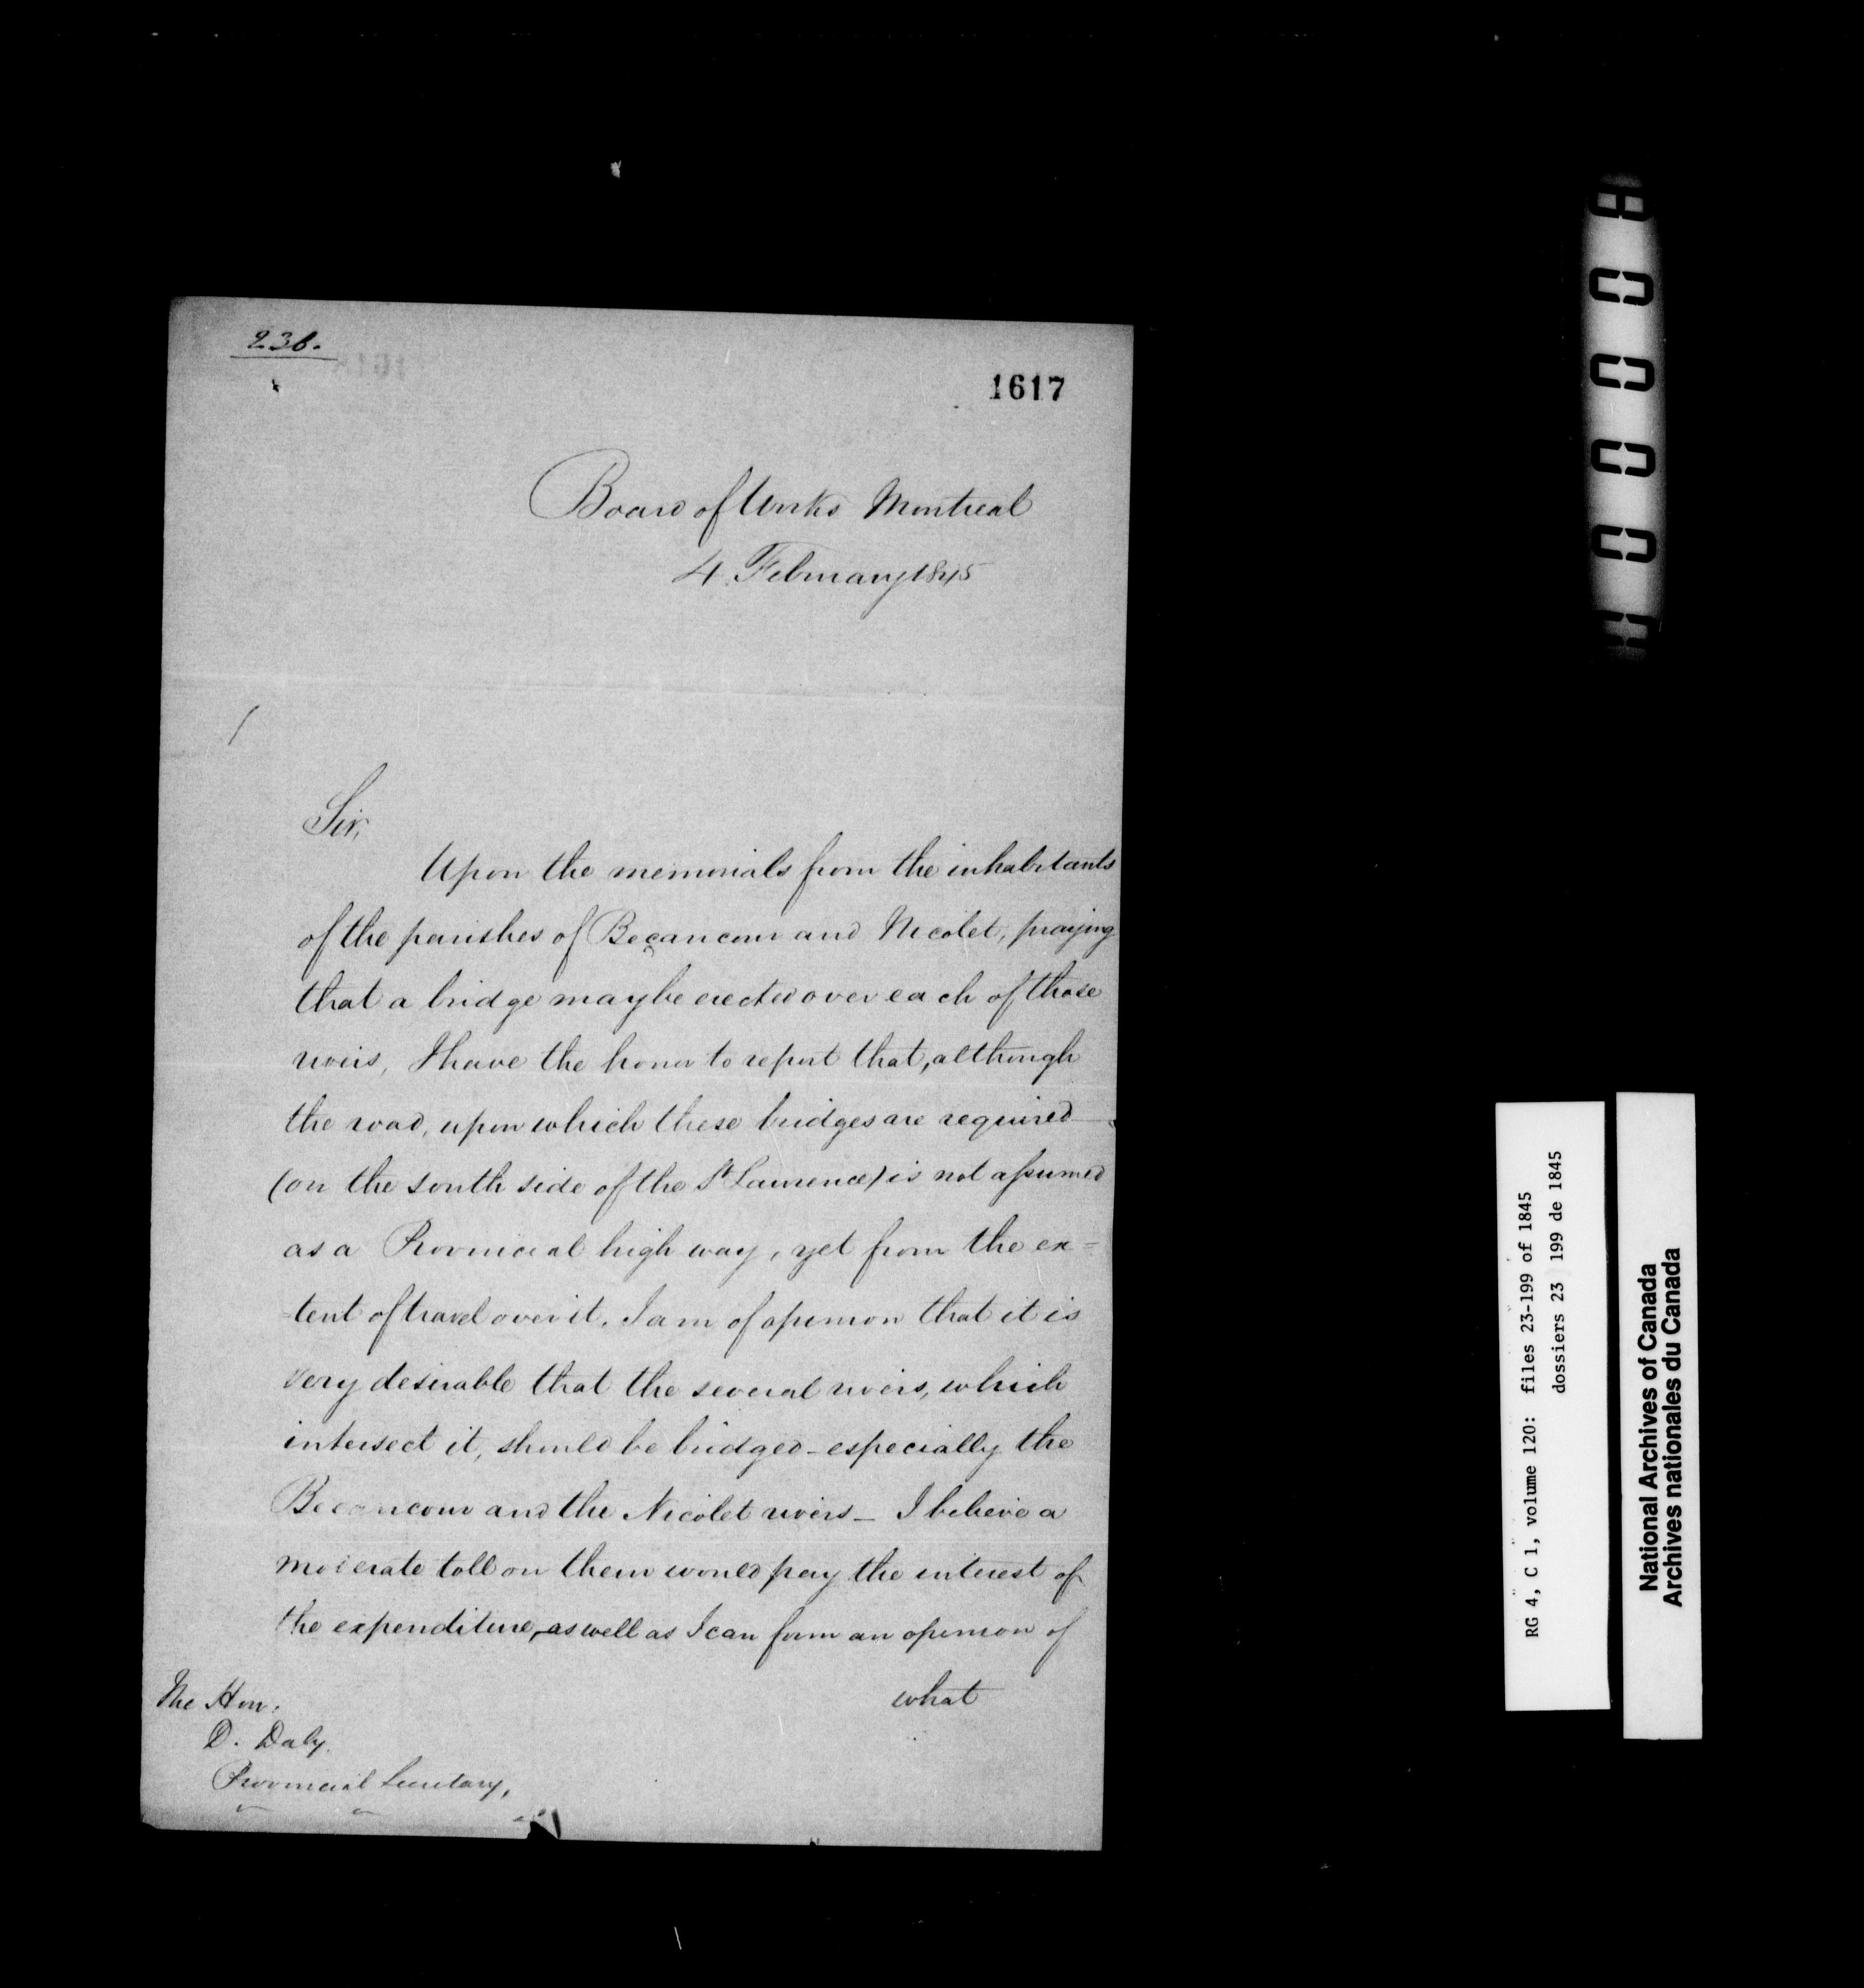 236.
1617
Board of Works Montreal
4 February 1845
Sir,
Upon the memorials from the inhabitants
of the parishes of Becancour and Nicolet, praying
that a bridge may be erected over each of those
rivers, I have the honor to report that, although
the road, upon which these bridges are required
(on the south side of the St Lawrence) is not assumed
as a Provincial high way, yet from the ex=
tent of travel over it, I am of opinion that it is
very desirable that the several rivers, which
intersect it, should be bridged - especially the
Becancour and the Nicolet rivers - I believe a
moderate toll on them would pay the interest of
the expenditure, as well as I can form an opinion of
what
The Hon.
D. Daly.
Provincial Secretary,
RG 4, C 1, volume 120: files 23-199 of 1845
dossiers 23 199 de 1845
National Archives of Canada
Archives nationales du Canada